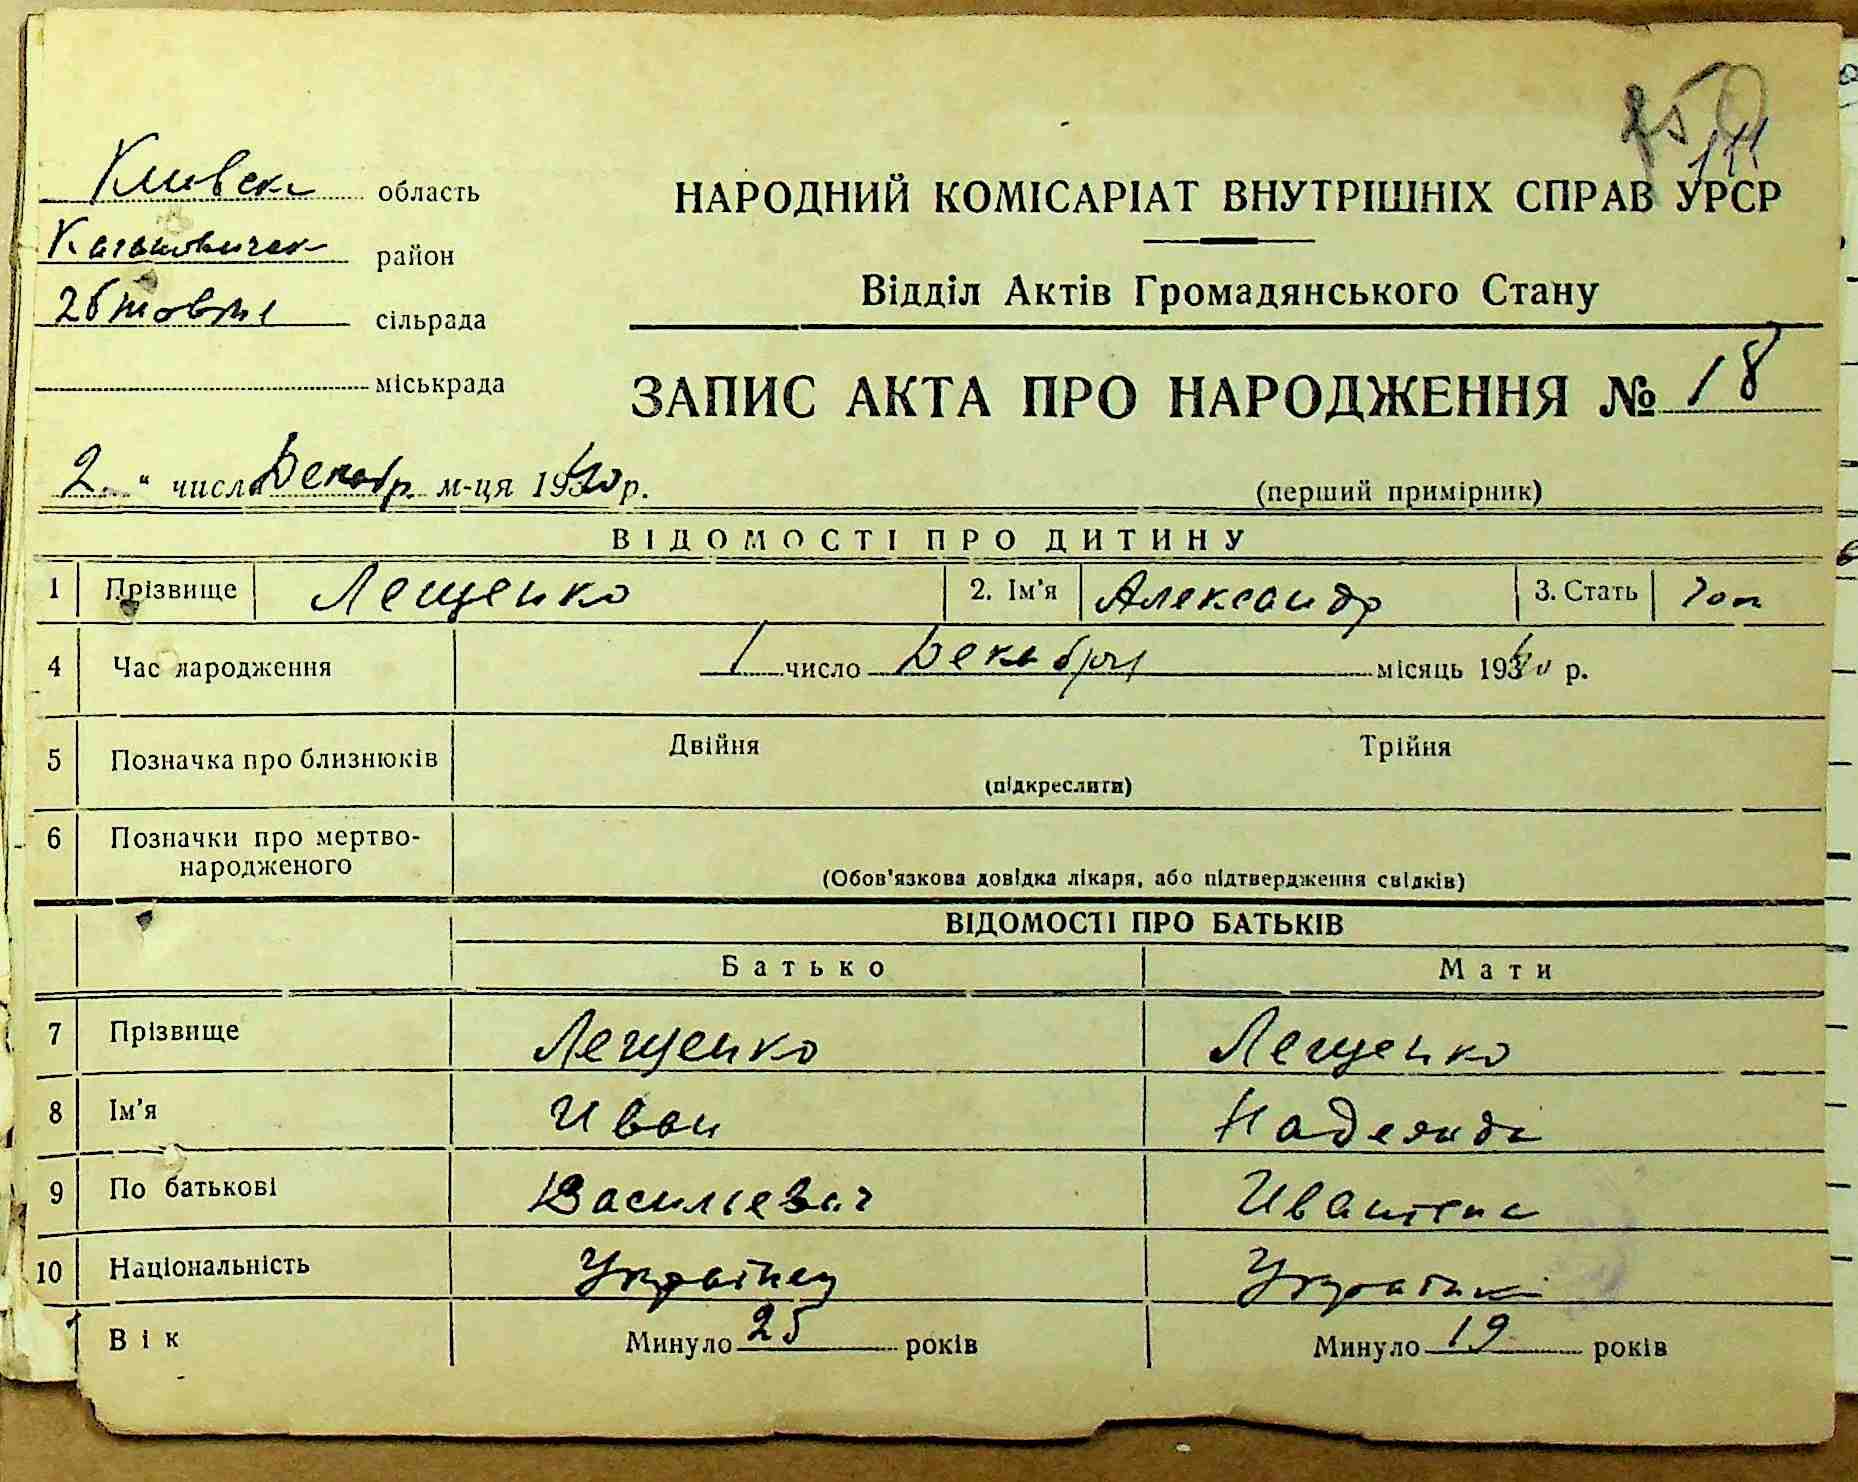 250
111
Киевск область
Каганович район
26 жовтня сільрада
міськрада
НАРОДНИЙ КОМІСАРІАТ ВНУТРІШНІХ СПРАВ УРСР
Відділ Актів Громадянського Стану
ЗАПИС АКТА ПРО НАРОДЖЕННЯ № 18
2 " число Декабр м-ця 1940 р.
(перший примірник)
ВІДОМОСТІ ПРО ДИТИНУ
1 Прізвище Лещенко 2. Ім'я Александр 3. Стать чол
4 Час народження 1 число Декабря місяць 1940 р.
5 Позначка про близнюків Двійня Трійня
(підкреслити)
6 Позначки про мертво-
народженого
(Обов'язкова довідка лікаря, або підтвердження свідків)
ВІДОМОСТІ ПРО БАТЬКІВ
Батько Мати
7 Прізвище Лещенко Лещенко
8 Ім'я Иван Надежда
9 По батькові Васильевич Ивановна
10 Національність Українец Українка
Вік Минуло 25 років Минуло 19 років